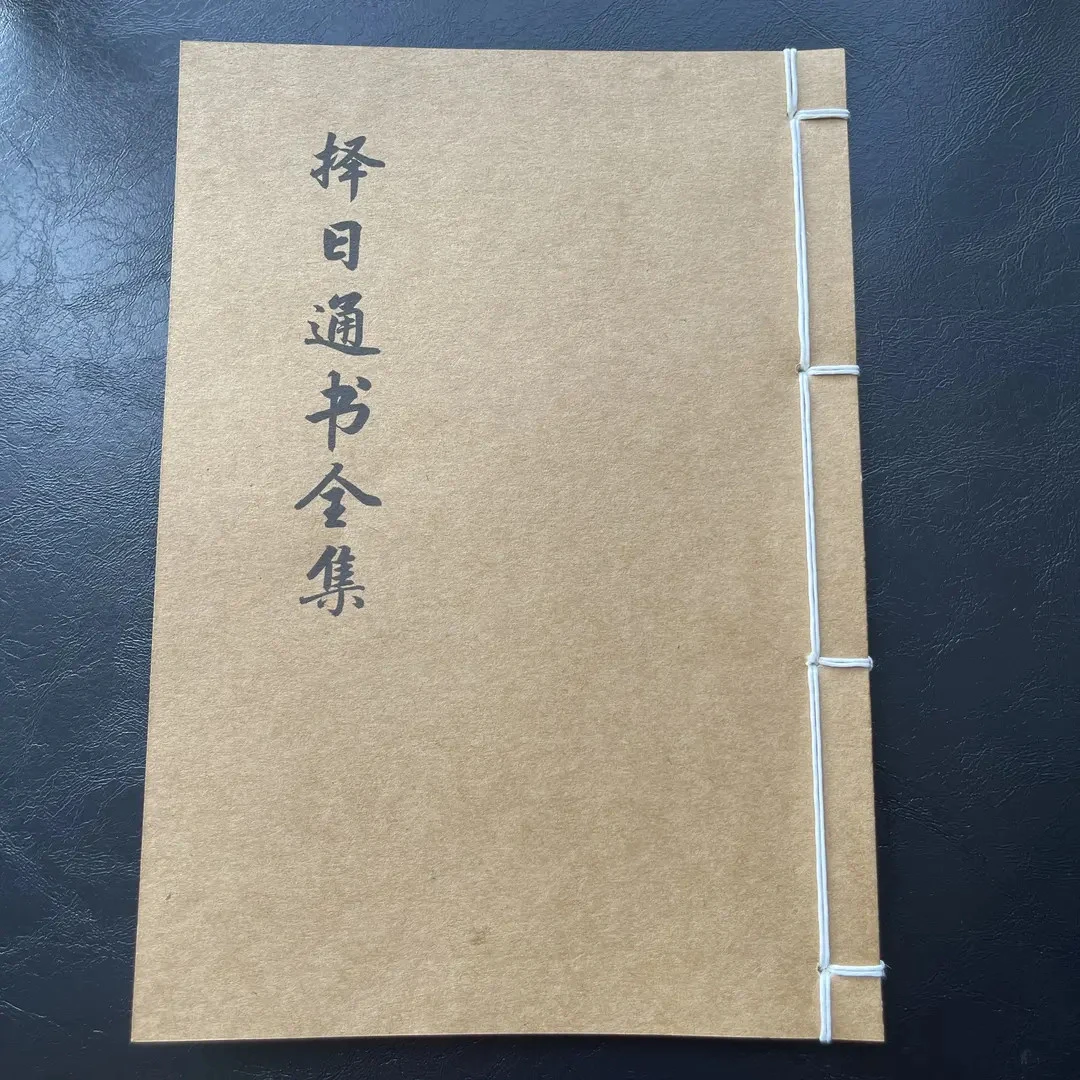 择日通书全集